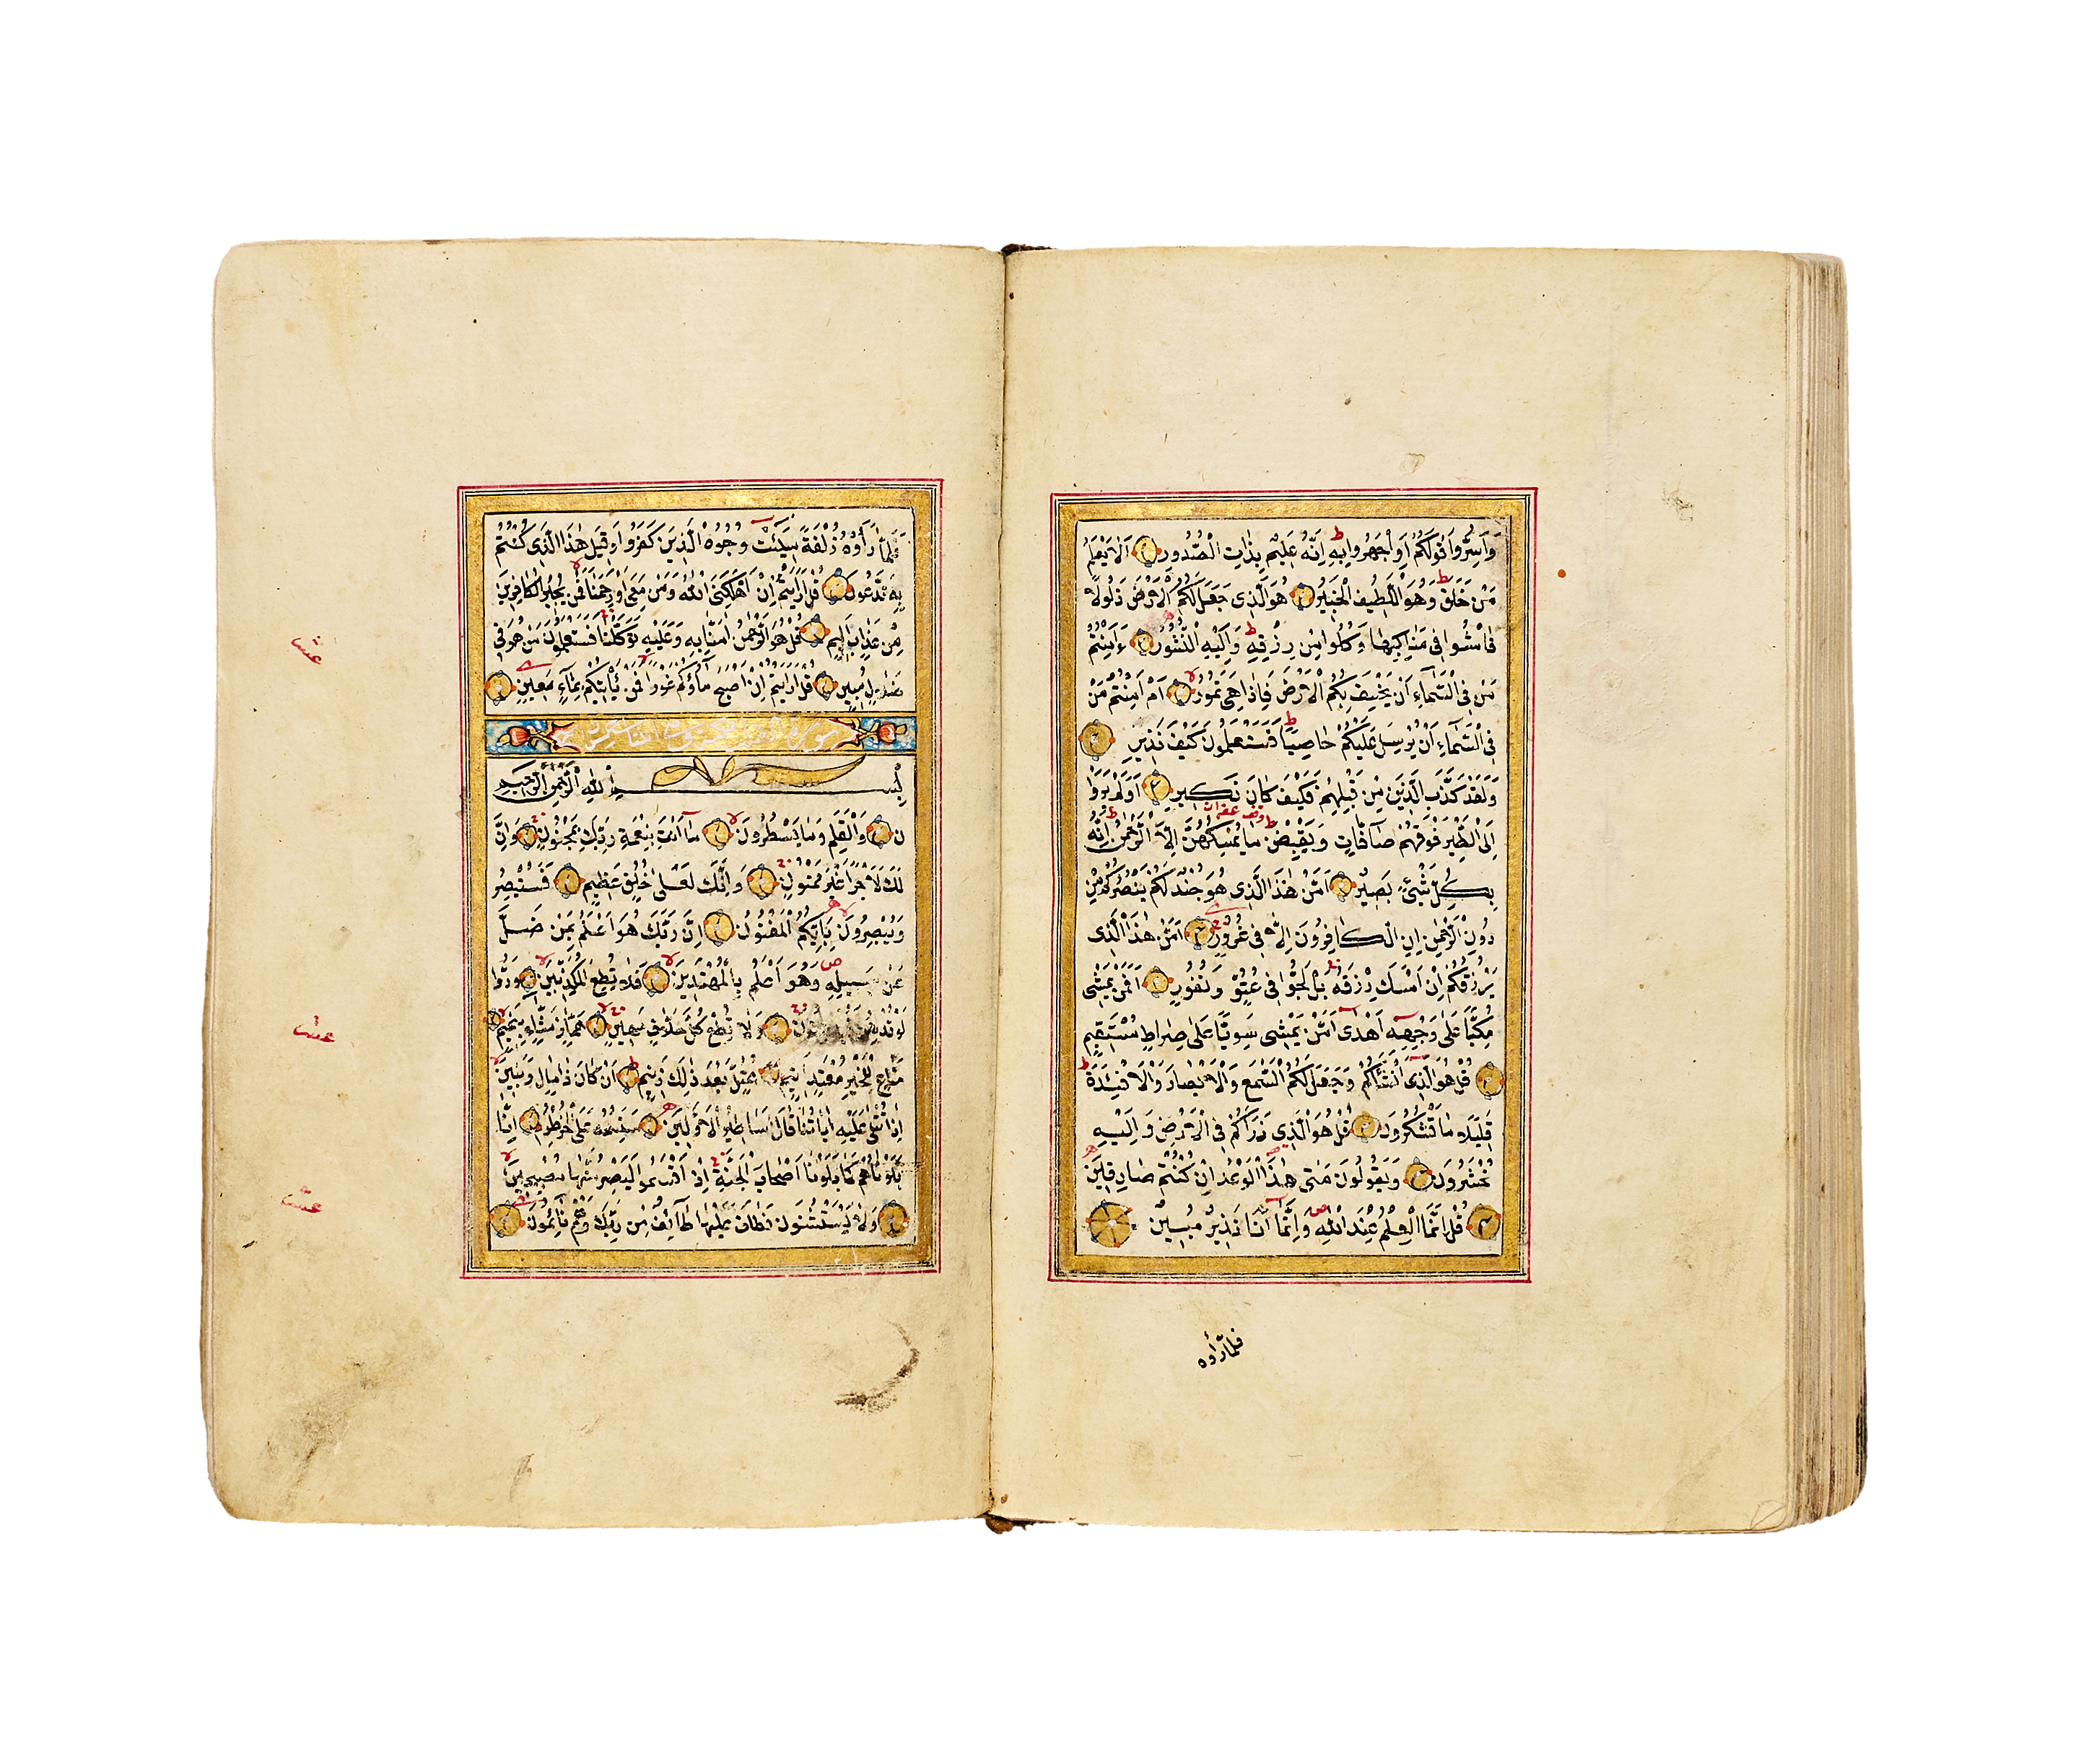 وَاَسِرُّوا قَوْلَكُمْ اَوِ اجْهَرُوا بِهِ اِنَّهُ عَلِيمٌ بِذَاتِ الصُّدُورِ اَلَا يَعْلَمُ
مَنْ خَلَقَ وَهُوَ اللَّطِيفُ الْخَبِيرُ هُوَ الَّذِى جَعَلَ لَكُمُ الْاَرْضَ ذَلُولًا
فَامْشُوا فِى مَنَاكِبِهَا وَكُلُوا مِنْ رِزْقِهِ وَاِلَيْهِ النُّشُورُ ءَاَمِنْتُمْ
مَنْ فِى السَّمَآءِ اَنْ يَخْسِفَ بِكُمُ الْاَرْضَ فَاِذَا هِىَ تَمُورُ اَمْ اَمِنْتُمْ مَنْ
فِى السَّمَآءِ اَنْ يُرْسِلَ عَلَيْكُمْ حَاصِبًا فَسَتَعْلَمُونَ كَيْفَ نَذِيرِ
وَلَقَدْ كَذَّبَ الَّذِينَ مِنْ قَبْلِهِمْ فَكَيْفَ كَانَ نَكِيرِ اَوَلَمْ يَرَوْا
اِلَى الطَّيْرِ فَوْقَهُمْ صَآفَّاتٍ وَيَقْبِضْنَ مَا يُمْسِكُهُنَّ اِلَّا الرَّحْمٰنُ اِنَّهُ
بِكُلِّ شَىْءٍ بَصِيرٌ اَمَّنْ هٰذَا الَّذِى هُوَ جُنْدٌ لَكُمْ يَنْصُرُكُمْ مِنْ
دُونِ الرَّحْمٰنِ اِنِ الْكَافِرُونَ اِلَّا فِى غُرُورٍ اَمَّنْ هٰذَا الَّذِى
يَرْزُقُكُمْ اِنْ اَمْسَكَ رِزْقَهُ بَلْ لَجُّوا فِى عُتُوٍّ وَنُفُورٍ اَفَمَنْ يَمْشِى
مُكِبًّا عَلٰى وَجْهِهِ اَهْدٰى اَمَّنْ يَمْشِى سَوِيًّا عَلٰى صِرَاطٍ مُسْتَقِيمٍ
قُلْ هُوَ الَّذِى اَنْشَاَكُمْ وَجَعَلَ لَكُمُ السَّمْعَ وَالْاَبْصَارَ وَالْاَفْئِدَةَ
قَلِيلًا مَا تَشْكُرُونَ قُلْ هُوَ الَّذِى ذَرَاَكُمْ فِى الْاَرْضِ وَاِلَيْهِ
تُحْشَرُونَ وَيَقُولُونَ مَتٰى هٰذَا الْوَعْدُ اِنْ كُنْتُمْ صَادِقِينَ
قُلْ اِنَّمَا الْعِلْمُ عِنْدَ اللّٰهِ وَاِنَّمَآ اَنَا نَذِيرٌ مُبِينٌ
فلمّا رأوه
فَلَمَّا رَاَوْهُ زُلْفَةً سِيٓئَتْ وُجُوهُ الَّذِينَ كَفَرُوا وَقِيلَ هٰذَا الَّذِى كُنْتُمْ
بِهِ تَدَّعُونَ قُلْ اَرَاَيْتُمْ اِنْ اَهْلَكَنِىَ اللّٰهُ وَمَنْ مَعِىَ اَوْ رَحِمَنَا فَمَنْ يُجِيرُ الْكَافِرِينَ
مِنْ عَذَابٍ اَلِيمٍ قُلْ هُوَ الرَّحْمٰنُ اٰمَنَّا بِهِ وَعَلَيْهِ تَوَكَّلْنَا فَسَتَعْلَمُونَ مَنْ هُوَ فِى
ضَلَالٍ مُبِينٍ قُلْ اَرَاَيْتُمْ اِنْ اَصْبَحَ مَآؤُكُمْ غَوْرًا فَمَنْ يَاْتِيكُمْ بِمَآءٍ مَعِينٍ
سورة
بِسْمِ اللّٰهِ الرَّحْمٰنِ الرَّحِيمِ
ن وَالْقَلَمِ وَمَا يَسْطُرُونَ مَآ اَنْتَ بِنِعْمَةِ رَبِّكَ بِمَجْنُونٍ وَاِنَّ
لَكَ لَاَجْرًا غَيْرَ مَمْنُونٍ وَاِنَّكَ لَعَلٰى خُلُقٍ عَظِيمٍ فَسَتُبْصِرُ
وَيُبْصِرُونَ بِاَيِّكُمُ الْمَفْتُونُ اِنَّ رَبَّكَ هُوَ اَعْلَمُ بِمَنْ ضَلَّ
عَنْ سَبِيلِهِ وَهُوَ اَعْلَمُ بِالْمُهْتَدِينَ فَلَا تُطِعِ الْمُكَذِّبِينَ وَدُّوا
لَوْ تُدْهِنُ وَلَا تُطِعْ كُلَّ حَلَّافٍ مَهِينٍ هَمَّازٍ مَشَّآءٍ بِنَمِيمٍ
مَنَّاعٍ لِلْخَيْرِ مُعْتَدٍ اَثِيمٍ عُتُلٍّ بَعْدَ ذٰلِكَ زَنِيمٍ اَنْ كَانَ ذَا مَالٍ وَبَنِينَ
اِذَا تُتْلٰى عَلَيْهِ اٰيَاتُنَا قَالَ اَسَاطِيرُ الْاَوَّلِينَ سَنَسِمُهُ عَلَى الْخُرْطُومِ اِنَّا
بَلَوْنَاهُمْ كَمَا بَلَوْنَا اَصْحَابَ الْجَنَّةِ اِذْ اَقْسَمُوا لَيَصْرِمُنَّهَا مُصْبِحِينَ
وَلَا يَسْتَثْنُونَ فَطَافَ عَلَيْهَا طَآئِفٌ مِنْ رَبِّكَ وَهُمْ نَآئِمُونَ
عشر
عشر
عشر